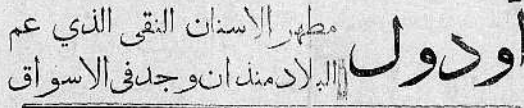 أودول
مطهر الاسنان النقى الذي عم
البلاد منذ ان وجد فى الاسواق